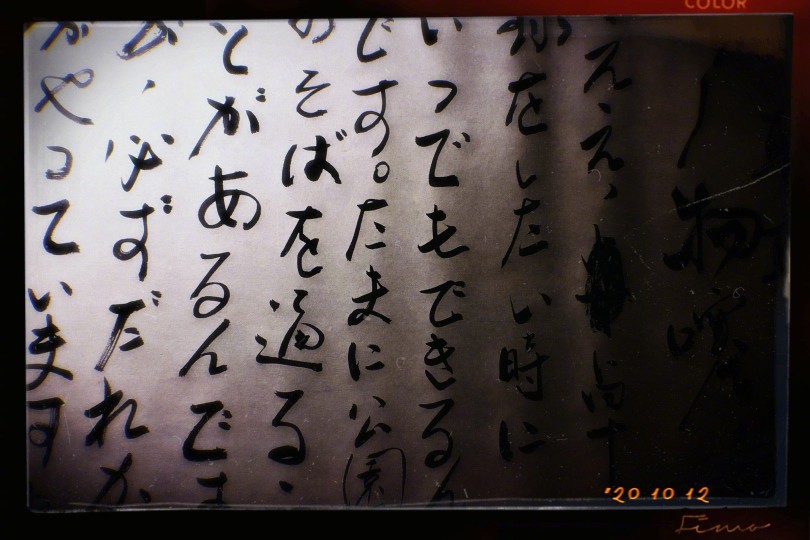 COLOR
物
え、え、卓
球をしたい時に
いつでもできるん
です。たまに公園
のそばを通る
とがあるんです
が、必ずだれか
がやっています
'20 10 12
Fimo